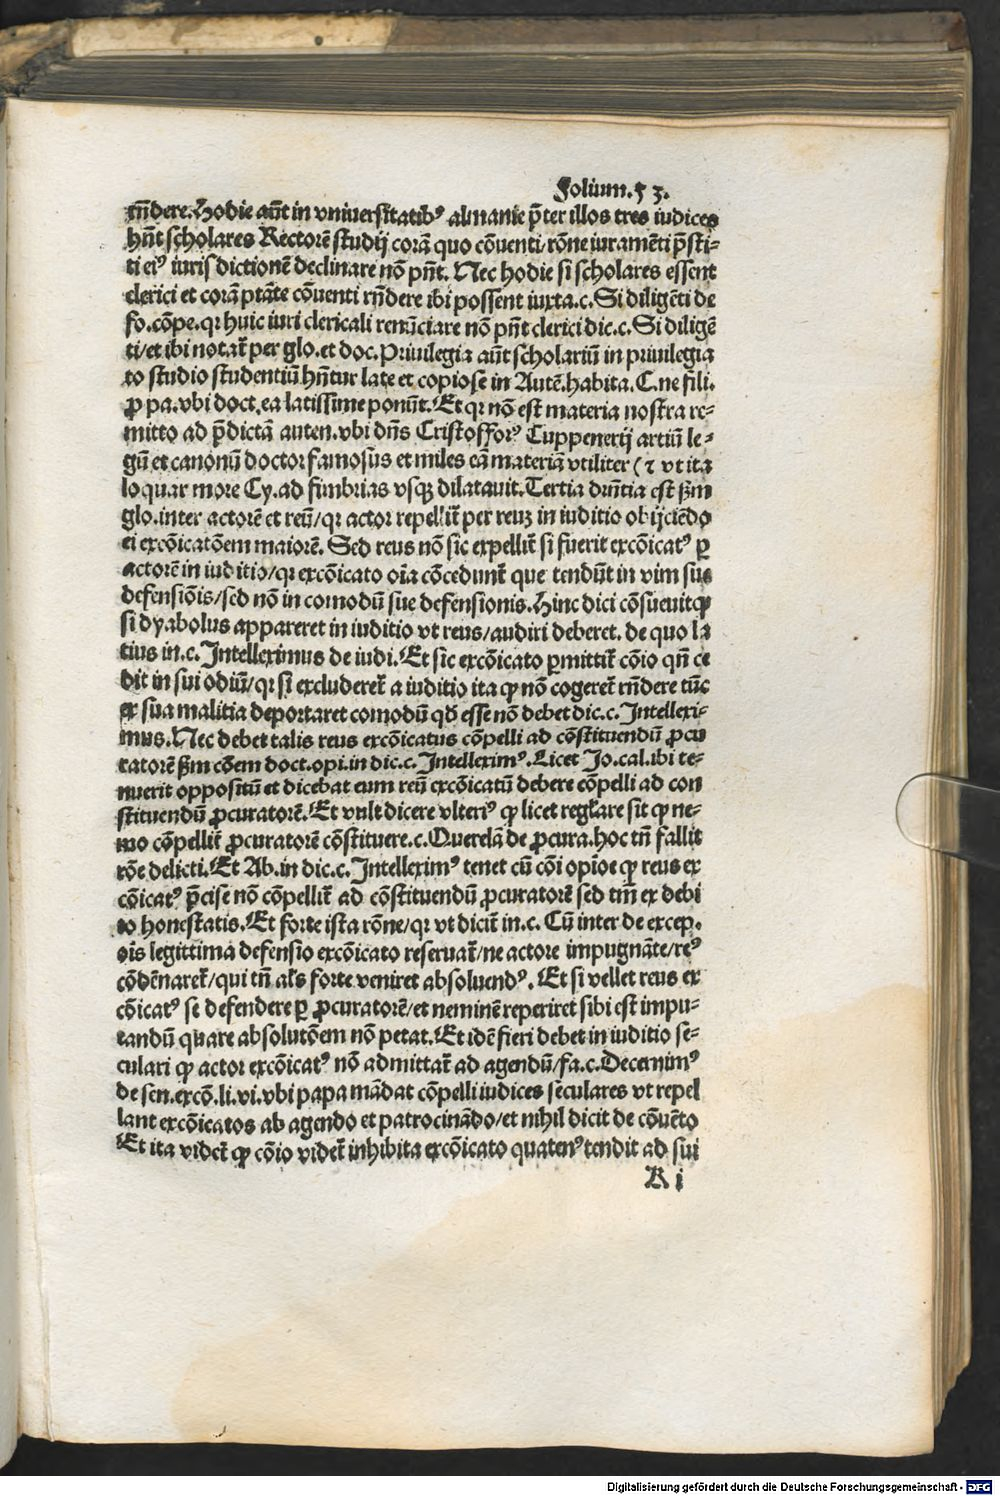 Folium.53.
rñdere.Hodie aūt in vniuersitatibꝰ almanie p̄ter illos tres iudices
hñt scholares Rectorē studij corā quo cōuenti/rōne iuramēti p̄sti-
ti eiꝰ iurisdictionē declinare nō pñt. Nec hodie si scholares essent
clerici et corā ptāte cōuenti rñdere ibi possent iuxta.c.Si diligēti de
fo.cōpe.qꝛ huic iuri clericali renūciare nō pñt clerici dic.c.Si diligē
ti/et ibi notat̄ per glo.et doc.Priuilegia aūt scholariū in priuilegia
to studio studentiū hñtur late et copiose in Autē.habita.C.ne fili.
ꝓ pa.vbi doct.ea latissime ponūt.Et qꝛ nō est materia nostra re-
mitto ad p̄dictā auten.vbi dñs Cristofforꝰ Cuppenerij artiū le-
gū et canonū doctor famosus et miles eā materiā vtiliter (⁊ vt ita
loquar more Cy.ad fimbrias vsqꝫ dilatauit.Tertia drñtia est ẜm
glo.inter actorē et reū/qꝛ actor repellit̄ per reuꝫ in iuditio obijciēdo
ei excōicatōem maiorē. Sed reus nō sic expellit̄ si fuerit excōicatꝰ ꝑ
actorē in iuditio/qꝛ excōicato oīa cōcedunt̄ que tendūt in vim sue
defensiōis/sed nō in comodū sue defensionis.Hinc dici cōsueuit ꝙ
si dyabolus appareret in iuditio vt reus/audiri deberet. de quo la
tius in.c.Intelleximus de iudi.Et sic excōicato ꝑmittit̄ cōio qñ ce
dit in sui odiū/qꝛ si excluderet̄ a iuditio ita ꝙ nō cogeret̄ rñdere tūc
ex sua malitia deportaret comodū qđ esse nō debet dic.c.Intellexi-
mus.Nec debet talis reus excōicatus cōpelli ad cōstituendū ꝓcu
ratorē ẜm cōem doct.opi.in dic.c.Intelleximꝰ.Licet Jo.cal.ibi te-
nuerit oppositū et dicebat eum reū excōicatū debere cōpelli ad con
stituendū ꝓcuratorē.Et vult dicere vlteriꝰ ꝙ licet regl'are sit ꝙ ne-
mo cōpellit̄ ꝓcuratorē cōstituere.c.Querelā de ꝓcura.hoc tñ fallit
rōe delicti.Et Ab.in dic.c.Intelleximꝰ tenet cū cōi opiōe ꝙ reus ex
cōicatꝰ p̄cise nō cōpellit̄ ad cōstituendū ꝓcuratorē sed tñ ex debi
to honestatis.Et forte ista rōne/qꝛ vt dicit̄ in.c. Cū inter de excep.
oīs legittima defensio excōicato reseruat̄/ne actore impugnāte/reꝰ
cōdēnaret̄/qui tñ al's forte veniret absoluendꝰ. Et si vellet reus ex
cōicatꝰ se defendere ꝑ ꝓcuratorē/et neminē reperiret sibi est impu-
tandū quare absolutōem nō petat.Et idē fieri debet in iuditio se-
culari ꝙ actor excōicatꝰ nō admittat̄ ad agendū/fa.c.Decernimꝰ
de sen.excō.li.vi.vbi papa mādat cōpelli iudices seculares vt repel
lant excōicatos ab agendo et patrocināndo/et nihil dicit de cōuēto
Et ita videt̄ ꝙ cōio videt̄ inhibita excōicato quatenꝰ tendit ad sui
K i
Digitalisierung gefördert durch die Deutsche Forschungsgemeinschaft - DFG